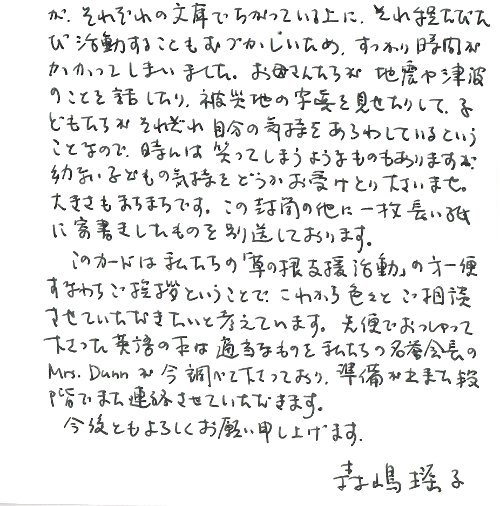 が、それぞれの文庫でちがっている上に、それ程たびた
び活動することもむづかしいため、すっかり時間が
かかってしまいました。お母さんたちが地震や津波
のことを話したり、被災地の写真を見せたりして、子
どもたちがそれぞれ自分の気持をあらわしているという
ことなので、時には笑ってしまうようなものもありますが
幼ない子どもの気持をどうかお受けとり下さいませ。
大きさもまちまちです。この封筒の他に一枚長い紙
に寄書きしたものを別送しております。
このカードは私たちの「草の根支援活動」の第一便
すなわちご挨拶ということで、これから色々とご相談
させていただきたいと考えています。先便でおっしゃって
下さった英語の本は適当なものを私たちの名誉会長の
Mrs. Dunnが今調べて下さっており、準備が出来た段
階でまた連絡させていただきます。
今後ともよろしくお願い申し上げます。
嶋 子